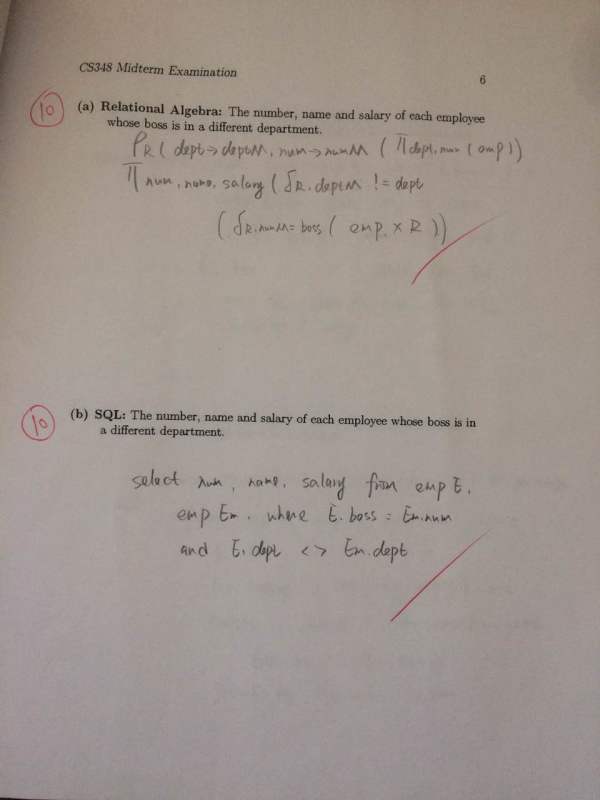 CS348 Midterm Examination
6
10
(a) Relational Algebra: The number, name and salary of each employee
whose boss is in a different department.
ρR ( dept→deptM, num→numM ( π dept, num ( emp ) )
π num, name, salary ( δR.deptM != dept
( δR.numM = boss ( emp × R ) )
10
(b) SQL: The number, name and salary of each employee whose boss is in
a different department.
select num, name, salary from emp E,
emp Em, where E.boss = Em.num
and E.dept <> Em.dept